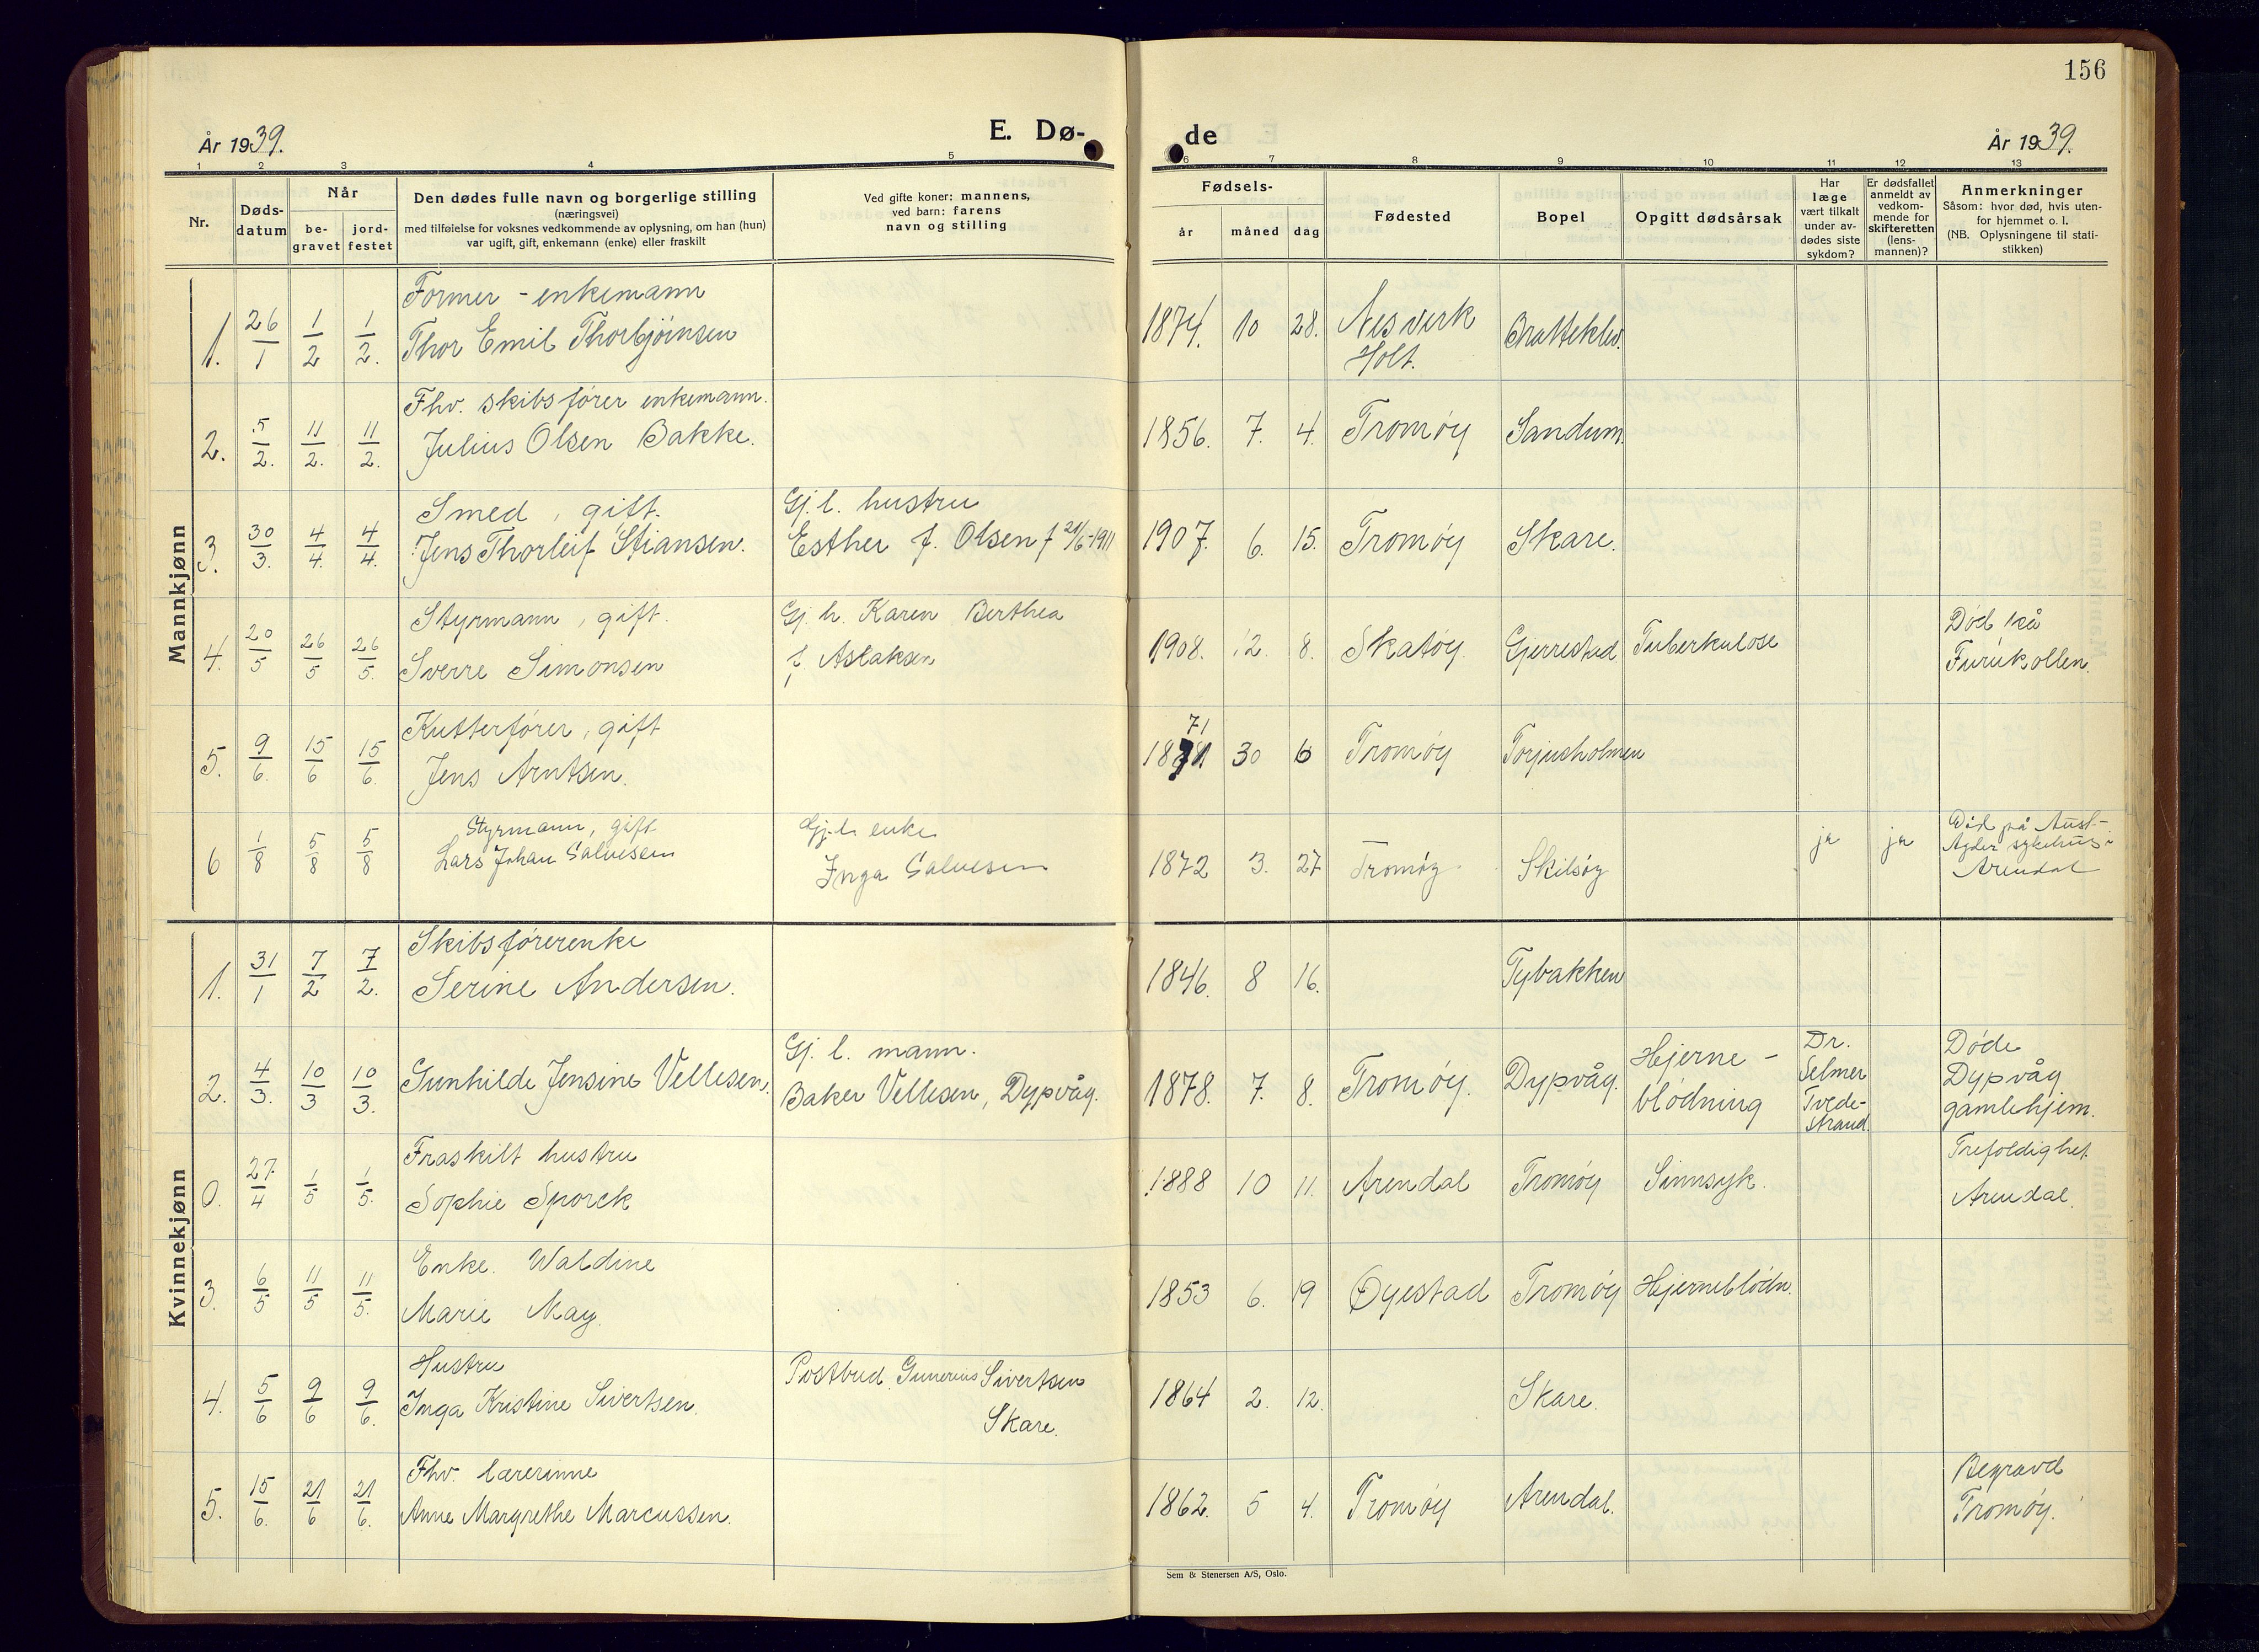 156
År 1939.
E. Dø-
de
År 1939.
1 2 3 4 5 6 7 8 9 10 11 12 13
Nr.
Døds-
datum
Når
be-
gravet
jord-
festet
Den dødes fulle navn og borgerlige stilling
(næringsvei)
med tilføielse for voksnes vedkommende av oplysning, om han (hun)
var ugift, gift, enkemann (enke) eller fraskilt
Ved gifte koner: mannens,
ved barn: farens
navn og stilling
Fødsels-
år måned dag
Fødested
Bopel
Opgitt dødsårsak
Har
læge
vært tilkalt
under av-
dødes siste
sykdom?
Er dødsfallet
anmeldt av
vedkom-
mende for
skifteretten
(lens-
mannen)?
Anmerkninger
Såsom: hvor død, hvis uten-
for hjemmet o. l.
(NB. Oplysningene til stati-
stikken)
Mannkjønn
Former - enkemann
1. 26/1 1/2 1/2. Thor Emil Thorbjörnsen 1874. 10 28. Nesverk Bratteklev.
Holt.
Fhv. skibsfører enkemann.
2. 5/2. 11/2. 11/2. Julius Olsen Bakke. 1856. 7. 4. Tromøy Sandum.
Smed, gift. Gj. l. hustru
3. 30/3. 4/4. 4/4. Jens Thorleif Stiansen. Esther f. Olsen f 21/6-1911 1907. 6. 15. Tromøy Skare.
Styrmann, gift. Gj. h. Karen Berthea Død på
4. 20/5 26/5 26/5. Sverre Simonsen f. Aslaksen 1908. 12. 8. Skatøy. Gjerrestad Tuberkulose Furukollen.
Kutterfører, gift 71
5. 9/6. 15/6 15/6. Jens Arntsen. 1871. 30 6 Tromøy Torjusholmen
Styrmann, gift Gj. l. enke Død på Aust-
6 1/8 5/8 5/8 Lars Johan Salvesen Inga Salvesen 1872 3. 27 Tromøy Skilsøy ja ja Agder sykehus i
Arendal
Kvinnekjønn
Skibsførerenke
1. 31/1 7/2 7/2. Serine Andersen. 1846. 8 16. Tybakken
Gj. l. mann. Hjerne- Dr. Døde
2. 4/3. 10/3 10/3. Gunhilde Jensine Vellesen. Baker Vellesen, Dypvåg. 1878. 7. 8. Tromøy. Dypvåg. blödning Selmer Dypvåg
Tvede- gamlehjem.
strand.
Fraskilt hustru Trefoldighet
0. 27/4 1/5 1/5. Sophie Sporck 1888 10 11. Arendal Tromøy Sinnsyk. Arendal.
Enke. Waldine
3. 6/5 11/5 11/5. Marie May. 1853 6. 19 Øyestad Tromøy Hjerneblödn.
Hustru Postbud Gunerius Sivertsen
4. 5/6 9/6 9/6. Inga Kristine Sivertsen. Skare. 1864 2. 12. Skare.
Fhv. lærerinne Begravd
5. 15/6. 21/6 21/6. Anne Margrethe Marcussen. 1862. 5 4. Tromøy Arendal. Tromøy.
Sem & Stenersen A/S, Oslo.